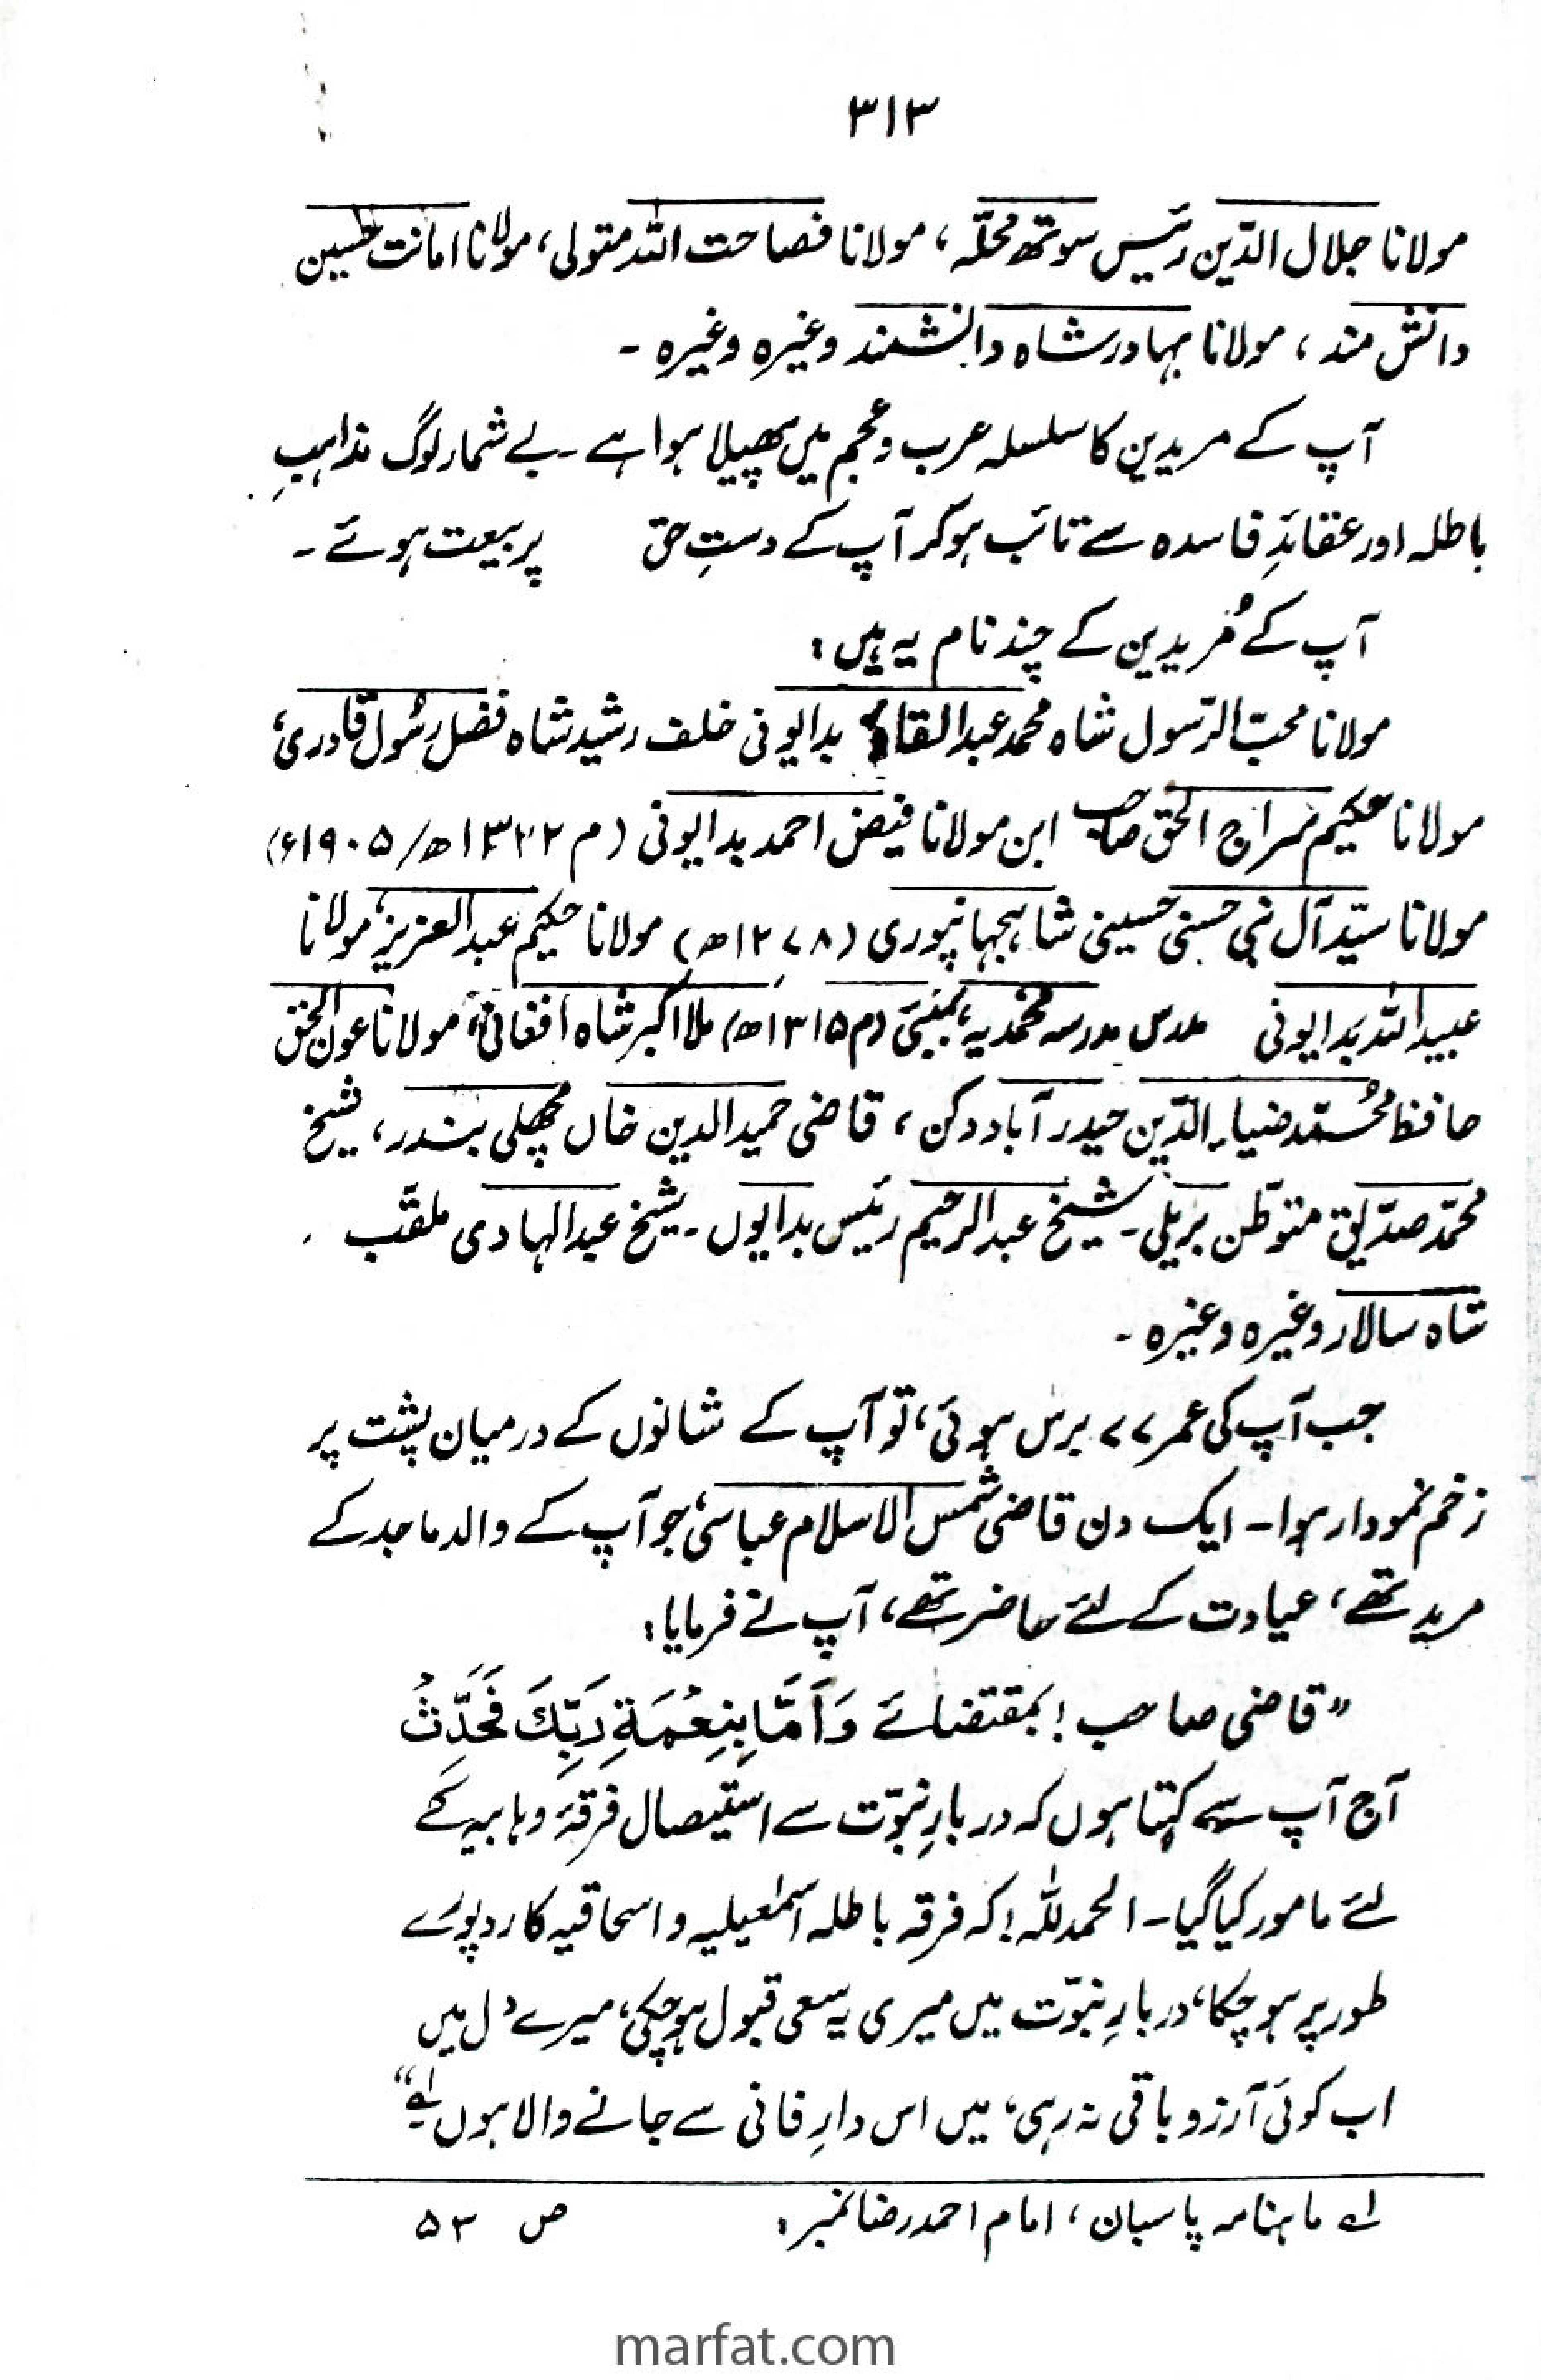 ۳۱۳
مولانا جلال الدّین رئیس سوتھ محلّہ، مولانا فصاحت اللہ متولی، مولانا امانت حسین
دانش مند، مولانا بہادر شاہ دانشمند وغیرہ وغیرہ ۔
آپ کے مریدین کا سلسلہ عرب و عجم میں پھیلا ہوا ہے ۔ بے شمار لوگ مذاہبِ
باطلہ اور عقائدِ فاسدہ سے تائب ہو کر آپ کے دستِ حق پر بیعت ہوئے ۔
آپ کے مُریدین کے چند نام یہ ہیں :
مولانا محبّ الرّسول شاہ محمد عبدالقادر بدایونی خلف رشید شاہ فضل رسُول قادری،
مولانا حکیم سراج الحق صاحب ابن مولانا فیض احمد بدایونی (م ۱۳۲۲ھ/ ۱۹۰۵ء)
مولانا سیّد آل نبی حسنی حسینی شاہجہانپوری (۱۲۷۸ھ) مولانا حکیم عبدالعزیز، مولانا
عبید اللہ بدایونی مدرس مدرسہ محمدیہ، بمبئی (م ۱۳۱۵ھ) ملا اکبر شاہ افغانی، مولانا عون الحق
حافظ محُمّد ضیاء الدّین حیدر آباد دکن، قاضی حمید الدین خاں مچھلی بندر، شیخ
محمّد صدّیق متوطّن بریلی ۔ شیخ عبدالرحیم رئیس بدایوں ۔ شیخ عبدالہادی ملقّب
شاہ سالار وغیرہ وغیرہ ۔
جب آپ کی عمر ۷۷ برس ہوئی، تو آپ کے شانوں کے درمیان پشت پر
زخم نمودار ہوا ۔ ایک دن قاضی شمس الاسلام عباسی، جو آپ کے والد ماجد کے
مرید تھے، عیادت کے لئے حاضر تھے، آپ نے فرمایا :
”قاضی صاحب ! بمقتضائے وَاَمَّا بِنِعْمَةِ رَبِّكَ فَحَدِّثْ
آج آپ سے کہتا ہوں کہ دربارِ نبوّت سے استیصال فرقۂ وہابیہ کے
لئے مامور کیا گیا ۔ الحمد للّٰہ ! کہ فرقہ باطلہ اسمٰعیلیہ و اسحاقیہ کا رد پورے
طور پر ہو چکا، دربارِ نبوّت میں میری یہ سعی قبول ہو چکی، میرے دل میں
اب کوئی آرزو باقی نہ رہی، میں اس دارِ فانی سے جانے والا ہوں ۱ے“
۱ے ماہنامہ پاسبان، امام احمد رضا نمبر : ص ۵۳
marfat.com